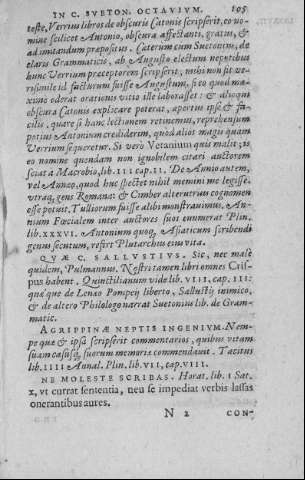 IN C. SVETON. OCTAVIVM. 195
teste, Verrius libros de obscuris Catonis scripserit, eo no-
mine scilicet Antonio, obscura affectanti, gratus, &
ad imitandum propositus. Ceterum cum Suetonius, de
claris Grammaticis, ab Augusto electum nepotibus
hunc Verrium praeceptorem scripserit, mihi non fit ve-
risimile id facturum fuisse Augustum, si eo quod ma-
ximo oderat orationis vitio ille laborasset: & alioqui
obscura Catonis explicare poterat, apertus ipse & fa-
cilis, quare si hanc lectionem retinemus, reprehensum
potius Antonium crediderim, quod alios magis quam
Verrium sequeretur. Si verò Veranium quis malit, is
eo nomine quendam non ignobilem citari auctorem
sciat a Macrobio, lib. III cap. II. De Annio autem,
vel Anneo, quod huc spectet nihil memini me legisse,
vtraq, gens Romana: & Cimber alterutrius cognomen
esse potuit, Tulliorum fuisse alibi monstrauimus. An-
nium Foecialem inter auctores suos enumerat Plin.
lib. XXXVI. Antonium quoq, Asiaticum scribendi
genus secutum, refert Plutarchus eius vita.
QVAE C. SALLVSTIVS. Sic, nec male
quidem, Pulmannus. Nostri tamen libri omnes Cris-
pus habent. Quinctilianum vide lib. VIII, cap. III:
quaque de Lenao Pompeij liberto, Sallustij inimico,
& de altero Philologo narrat Suetonius lib. de Gram-
matic.
AGRIPPINAE NEPTIS INGENIVM. Nem-
pe quae & ipsa scripserit commentarios, quibus vitam
suam casusq, suorum memoriae commendauit. Tacitus
lib. IIII Annal. Plin. lib. VII, cap. VIII.
NE MOLESTE SCRIBAS. Horat. lib. I Sat.
X, vt currat sententia, neu se impediat verbis lassas
onerantibus aures.
N 2 CON-